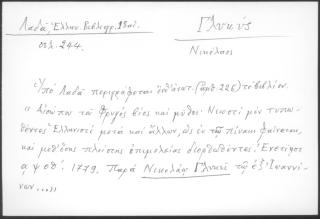 Λαδᾶ, Ἑλλην. Βιβλιογρ. 18 αἰ.
σελ. 244.
Γλυκύς
Νικόλαος
Ὑπὸ Λαδᾶ περιγράφεται (ἀρθ. 226) τὸ βιβλίον.
« Αἰσώπου τοῦ Φρυγὸς βίος καὶ μῦθοι. Νεωστὶ μὲν τυπω-
θέντες Ἑλληνιστὶ μετὰ καὶ ἄλλων, ὡς ἐν τῷ πίνακι φαίνεται,
καὶ μεθ' ὅσης πλείστης ἐπιμελείας διορθωθέντες. Ἐνετίῃσι
αψοθ'. 1779. Παρὰ Νικολάῳ Γλυκεῖ τῷ ἐξ Ἰωαννί-
νων...»